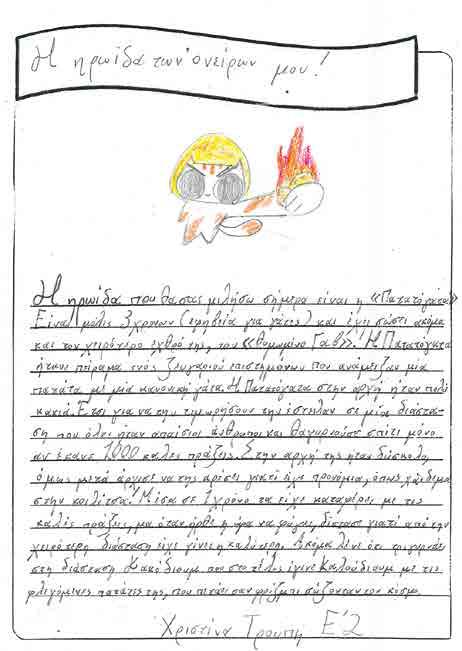 Η ηρωίδα των ονείρων μου!
Η ηρωίδα που θα σας μιλήσω σήμερα είναι η «Πατατόγατα»
Είναι μόλις 3 χρονων (εφηβεία για γάτες) και έχει σώσει ακόμα
και τον χειρότερο εχθρό της, τον «Θυμωμένο Γαβ». Η Πατατόγατα
ήταν πείραμα ενός ζευγαριού επιστημόνων που ανάμειξαν μία
πατάτα με μία κανονική γάτα. Η Πατατόγατα στην αρχή ήταν πολύ
κακιά. Έτσι για να την τιμωρήσουν την έστειλαν σε μία διάστα-
ση που όλοι ήταν απαίσιοι άνθρωποι και θα γυρνούσε σπίτι μόνο
αν έκανε 1000 καλές πράξεις. Στην αρχή της ήταν δύσκολο,
όμως μετά άρχισε να της αρέσει γιατί είχε προνόμια, όπως χάιδεμα
στην κοιλίτσα. Μέσα σε 1 χρόνο τα είχε καταφέρει με τις
καλές πράξεις, μα όταν ήρθε η ώρα να φύγει, δίστασε γιατί από την
χειρότερη διάσταση είχε γίνει η καλύτερη. Ακόμα λένε ότι τριγυρνάει
στη διάσταση που στο τέλος έγινε Καλούδιουμ με τις
φλεγόμενες πατάτες της, που πετάει σαν φρίζμπι σώζοντας τον κόσμο.
Χριστίνα Τρουπη Ε'2